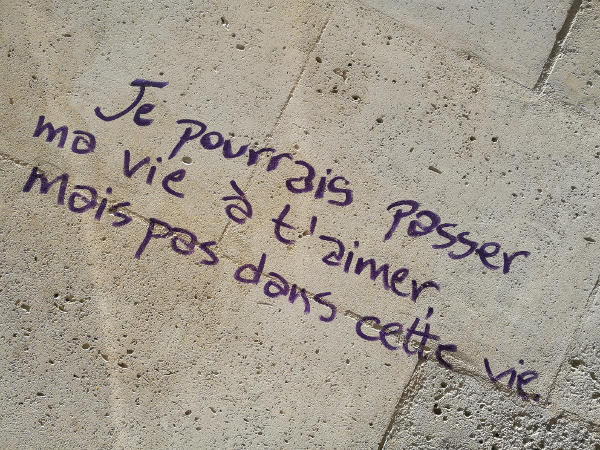 Je pourrais passer
ma vie à t'aimer,
Mais pas dans cette vie.